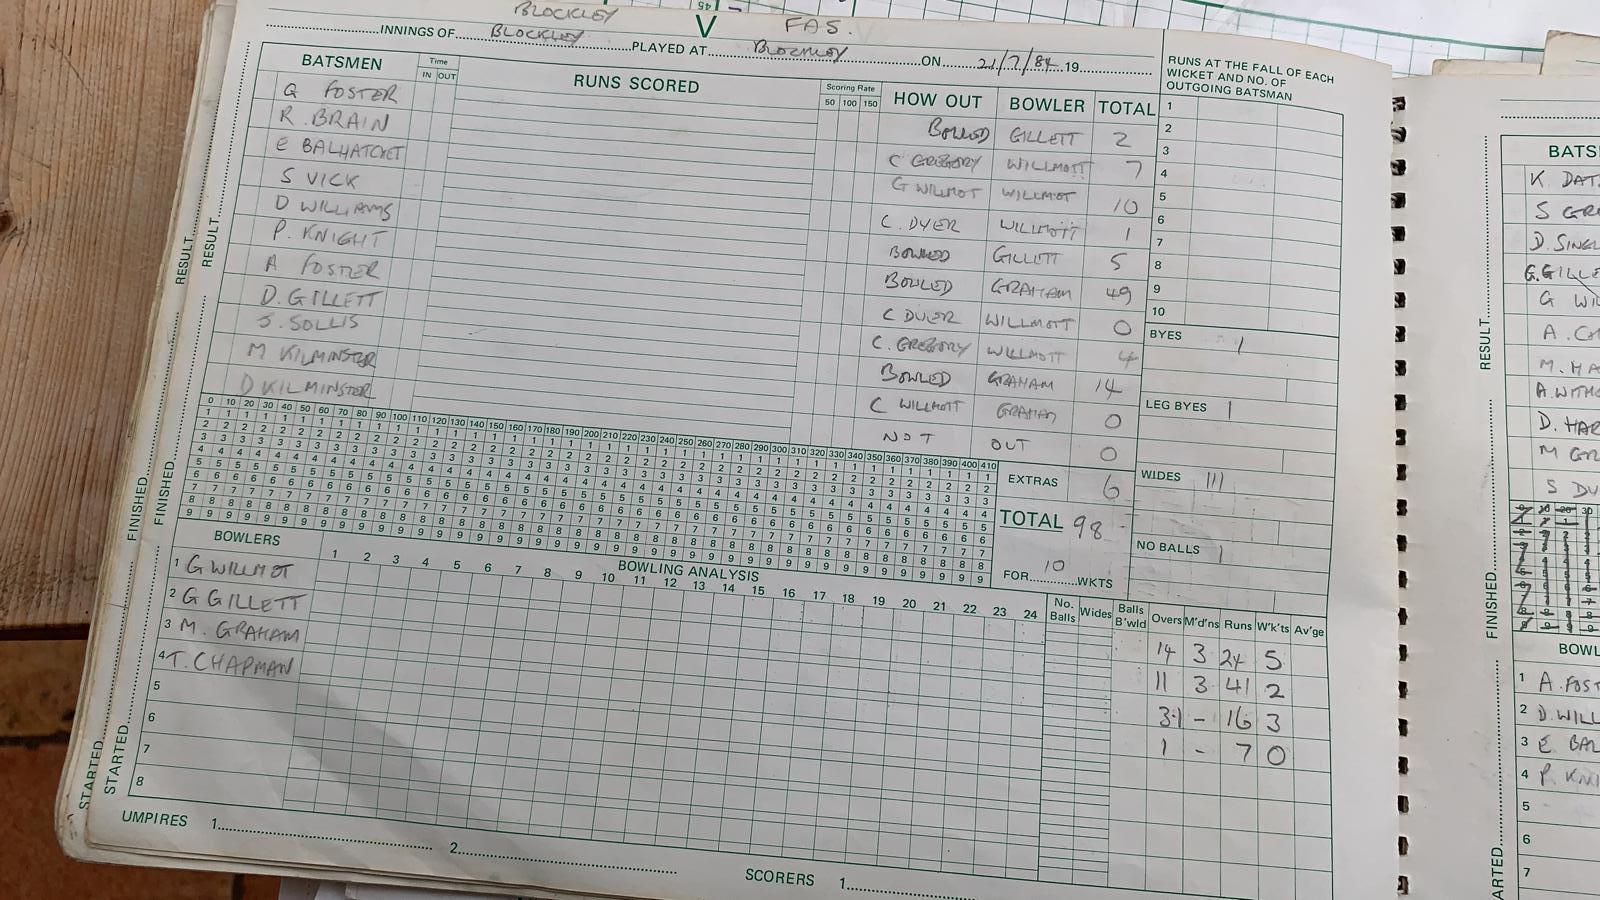 BLOCKLEY V FAS.
INNINGS OF BLOCKLEY PLAYED AT BLOCKLEY ON 21/7/84 19
BATSMEN Time IN OUT RUNS SCORED Scoring Rate 50 100 150 HOW OUT BOWLER TOTAL
G FOSTER BOWLED GILLETT 2
R. BRAIN C GREGORY WILLMOTT 7
E BALHATCHET G WILLMOT WILLMOT 10
S VICK C. DYER WILLMOTT 1
D WILLIAMS BOWLED GILLETT 5
P. KNIGHT BOWLED GRAHAM 49
A FOSTER C DYER WILLMOTT 0
D. GILLETT C. GREGORY WILLMOTT 4
S. SOLLIS BOWLED GRAHAM 14
M KILMINSTER C WILLMOTT GRAHAM 0
D KILMINSTER NOT OUT 0
RUNS AT THE FALL OF EACH
WICKET AND NO. OF
OUTGOING BATSMAN
1
2
3
4
5
6
7
8
9
10
BYES 1
LEG BYES 1
WIDES 111
NO BALLS 1
EXTRAS 6
TOTAL 98
FOR 10 WKTS
0 10 20 30 40 50 60 70 80 90 100 110 120 130 140 150 160 170 180 190 200 210 220 230 240 250 260 270 280 290 300 310 320 330 340 350 360 370 380 390 400 410
BOWLERS BOWLING ANALYSIS
1 2 3 4 5 6 7 8 9 10 11 12 13 14 15 16 17 18 19 20 21 22 23 24 No. Balls Wides Balls B'wld Overs M'd'ns Runs W'k'ts Av'ge
1 G WILLMOT 14 3 24 5
2 G GILLETT 11 3 41 2
3 M. GRAHAM 3.1 - 16 3
4 T. CHAPMAN 1 - 7 0
5
6
7
8
UMPIRES 1 2 SCORERS 1
RESULT
FINISHED
STARTED
RESULT
FINISHED
STARTED
RESULT
FINISHED
BATS
K
S
D.
G.
G
A.
M.
A.
D.
M
S
BOWL
1 A.
2 D.
3 E
4 P.
5
6
7